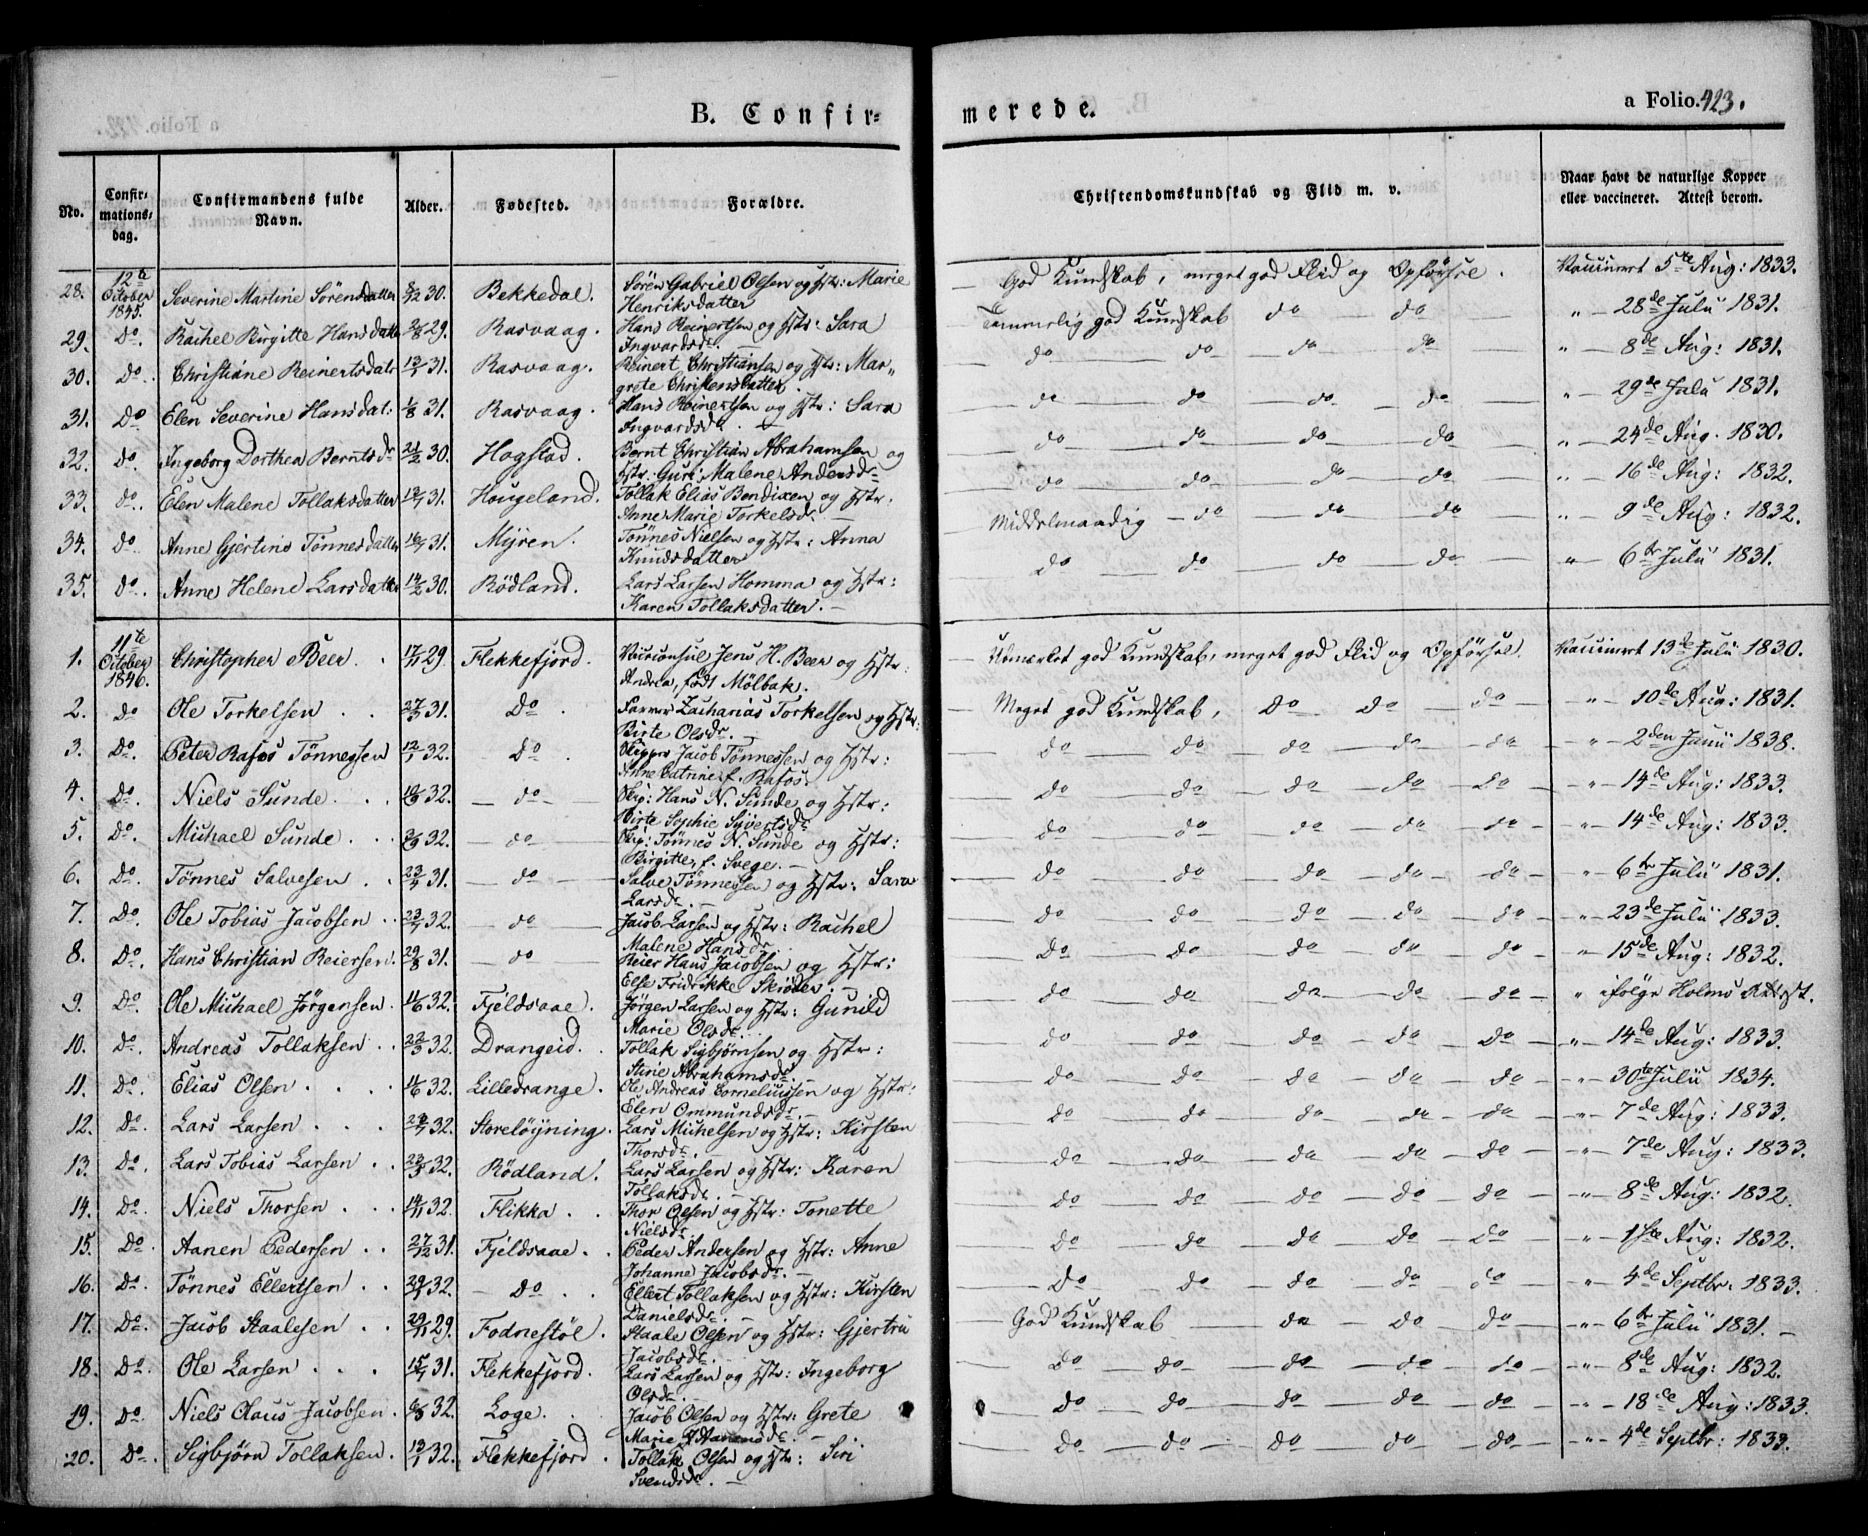 B. Confir=
merede.
a Folio. 423.
No.
Confir=
mations=
dag.
Confirmandens fulde
Navn.
Alder.
Fødested.
Forældre.
Christendomskundskab og Flid m. v.
Naar havt de naturlige Kopper
eller vaccineret. Attest derom.
28. 12te October 1845. Severine Martine Sörensdatter 30. Bekkedal. Sören Gabriel Olsen og Hstr: Marie Henriksdatter — God Kundskab, meget god Flid og Opförsel. Vaccineret 5te Aug: 1833.
29. Do. Rachel Birgitte Hansdatter 29. Rasvaag. Hans Reinertsen og Hstr: Sara Ingvardsdr. Temmelig god Kundskab do — do — " — 28de Julii 1831.
30. Do. Christiane Reinertsdatr 31. Rasvaag. Reinert Christiansen og Hstr: Margrete Christensdatter. do — do — do — do — " — 8de Aug: 1831.
31. Do. Elen Severine Hansdat: 1/8 31. Rasvaag. Hans Reinertsen og Hstr: Sara Ingvardsdr. — do — do — do — do — " — 29de Julii 1831.
32. Do. Ingeborg Dorthea Berntsdr 21/2 30. Hogstad. Bernt Christian Abrahamsen og Hstr: Guri Malene Andersdr do — do — do — do " — 24de Aug. 1830.
33. do. Elen Malene Tollaksdatter 31. Hougeland. Tollak Elias Bendixen og Hstr. Anne Marie Torkelsdr. — do — do — do — do — " — 16de Aug: 1832.
34. do. Anne Gjertine Tönnesdatter 31. Myren. Tönnes Nielsen og Hstr: Anna Knudsdatter Middelmaadig — do — do — do — " — 9de Aug: 1832.
35. do. Anne Helene Larsdatter 30. Rödland. Lars Larsen Homma og Hstr: Karen Tollaksdatter. — do — do — do — do — " — 6te Julii 1831.
1. 11te October 1846. Christopher Beer. 17/11 29. Flekkefjord. Viceconsul Jens H. Beer og Hstr: Andrea, født Mölbak. — Udmærket god Kundskab, meget god Flid og Opförsel. Vaccineret 13de Julii 1830.
2. do Ole Torkelsen 27/3 31. Do. Zacharias Torkelsen og Hstr: Birte Olsdr. — Meget god Kundskab, Do — Do — do — " — 10de Aug: 1831.
3. Do. Peter Rafos Tönnessen 12/1 32. do. Skipper Jacob Tönnessen og Hstr: Anne Catrine f. Rafos. do — do — do — do — do — " — 2den Junii 1838.
4. do. Niels Sunde. 32. — do — Skip: Hans N. Sunde og Hstr: Birte Sophie Syvertsdr do — do — do — do — do — " — 14de Aug: 1833.
5. Do. Michael Sunde. 32. — do — Skip: Tönnes N. Sunde og Hstr: Birgitte, f. Svege. — do — do — do — do — do — " — 14de Aug: 1833.
6. Do. Tönnes Salvesen 31. — do — Salve Tönnessen og Hstr: Sara Larsdr. — do — do — do — do — do — " — 6te Julii 1831.
7. Do. Ole Tobias Jacobsen 32. — do — Jacob Larsen og Hstr: Rachel Malene Hansdr do — do — do — do — do — " — 23de Julii 1833.
8. Do. Hans Christian Reiersen. 29/8 31. — do — Reier Hans Jacobsen og Hstr: Else Fridrikke Skröder. Do — do — do — do — do — " — 15de Aug: 1832.
9. Do. Ole Michael Jörgensen 32. Fjeldsaae. Jörgen Larsen og Hstr: Gunild Marie Olsdr. do — do — do — do — do — " ifölge Holms Attest.
10. do. Andreas Tollaksen 22/3 32. Drangeid. Tollak Sigbjörnsen og Hstr: Stine Abrahamsdr. do — do — do — do — Do — " — 14de Aug: 1833.
11. Do. Elias Olsen 32. Lilledrange. Ole Andreas Corneliussen og Hstr: Elen Ommundsdr. — do — do — do — do — do — " — 30te Julii 1834.
12. do. Lars Larsen 32. Storelöyning. Lars Michelsen og Hstr: Kirsten Thorsdr. do — do — do — do — do — " — 7de Aug: 1833.
13. Do. Lars Tobias Larsen 32. Rödland. Lars Larsen og Hstr: Karen Tollaksdr. — do — do — do — do — do — " — 7de Aug: 1833.
14. do. Niels Thorsen 32. Flikka. Thor Olsen og Hstr: Tonette Nielsdr do — do — do — do — do — " — 8de Aug: 1832.
15. Do. Aanen Pedersen 27/12 31. Fjeldsaae. Peder Andersen og Hstr: Anne Johanne Jacobsdr. — do — do — do — do — do — " — 1ste Aug: 1832.
16. do. Tönnes Ellertsen 32. — Do. Ellert Tollaksen og Hstr: Kirsten Danielsdr. — Do — do — do — do — do — " — 4de Septbr. 1833.
17. Do. Jacob Staalesen 29/11 29. Fodnestöl. Staale Olsen og Hstr: Gjertru Jacobsdr. God Kundskab — do — do — do — " — 6te Julii 1831. —
18. Do. Ole Larsen 31. Flekkefjord. Lars Larsen og Hstr: Ingeborg Olsdr. — Do — do — do — do — do — " — 8de Aug: 1832.
19. do. Niels Claus Jacobsen. 32. Loge. Jacob Olsen og Hstr: Grete Marie Aanensdr. — do — do — do — do — do — " — 18de Aug: 1833.
20. do. Sigbjörn Tollaksen 32. Flekkefjord. Tollak Olsen og Hstr: Siri Svendsdr. — do — do — do — do — do — " — 4de Septbr: 1833.